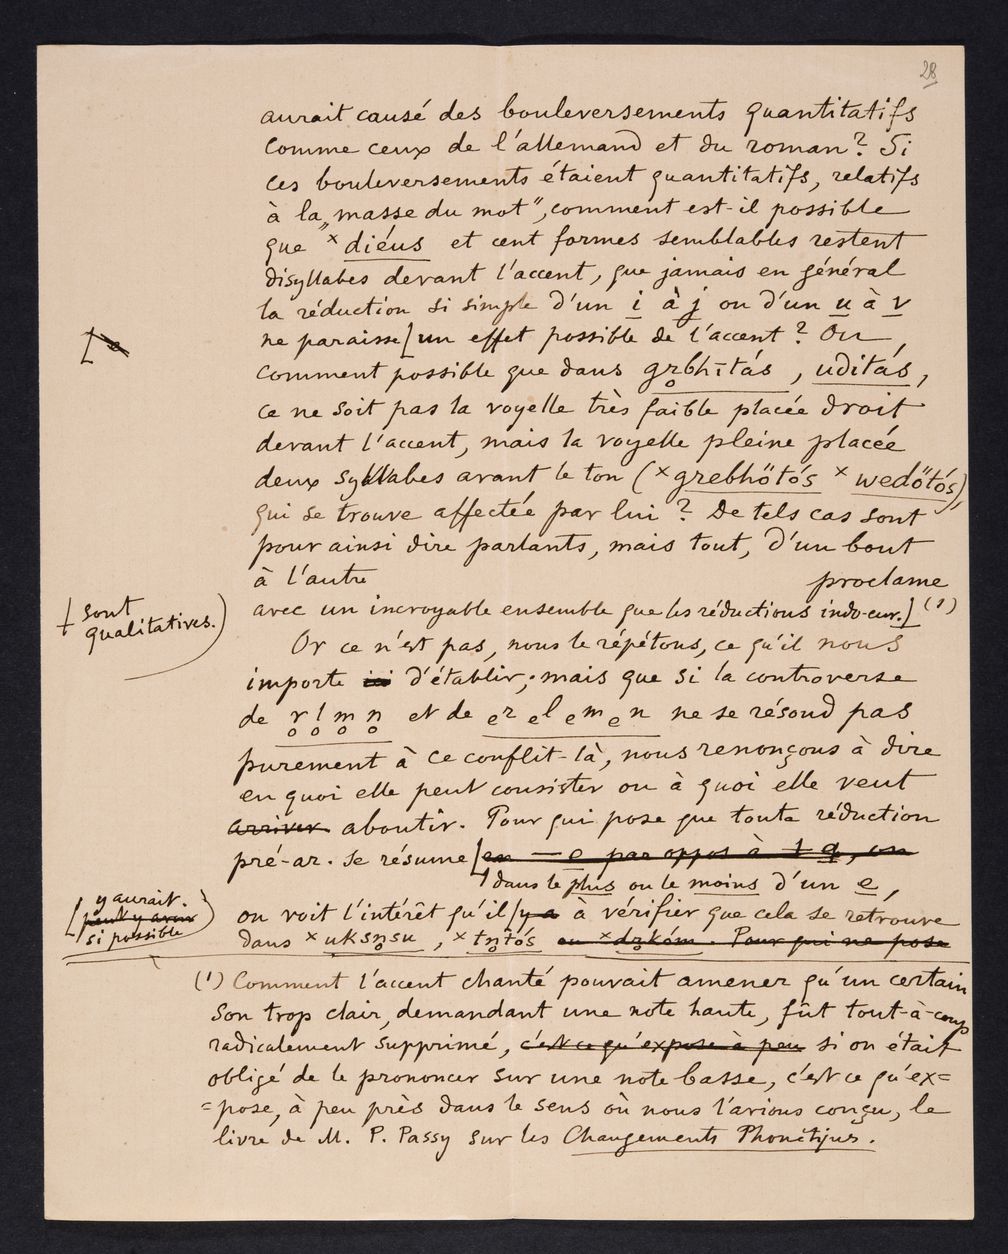 28
aurait causé des bouleversements quantitatifs
comme ceux de l'allemand et du roman? Si
ces bouleversements étaient quantitatifs, relatifs
à la „masse du mot", comment est-il possible
que ˣdiéus et cent formes semblables restent
disyllabes devant l'accent, que jamais en général
la réduction si simple d'un i à j ou d'un u à v
[
ne paraisse [ un effet possible de l'accent? Ou,
comment possible que dans gr̥bhītás, uditás,
ce ne soit pas la voyelle très faible placée droit
devant l'accent, mais la voyelle pleine placée
deux syllabes avant le ton (ˣgrebhötós ˣwedötós),
qui se trouve affectée par lui? De tels cas sont
pour ainsi dire parlants, mais tout, d'un bout
à l'autre proclame
avec un incroyable ensemble que les réductions indo-eur. [ (1)
[ sont
qualitatives.)
Or ce n'est pas, nous le répétons, ce qu'il nous
importe ici d'établir; mais que si la controverse
de r̥ l̥ m̥ n̥ et de ₑr ₑl ₑm ₑn ne se résoud pas
purement à ce conflit-là, nous renonçons à dire
en quoi elle peut consister ou à quoi elle veut
arriver aboutir. Pour qui pose que toute réduction
pré-ar. se résume [en — e par oppos à + a, on
dans le plus ou le moins d'un e,
[ y aurait.
peut y avoir
si possible )
on voit l'intérêt qu'il [y a à vérifier que cela se retrouve
dans ˣuksn̥su, ˣtn̥tós ou ˣdr̥kóm. Pour qui ne pose
(1) Comment l'accent chanté pouvait amener qu'un certain
son trop clair, demandant une note haute, fût tout-à-coup
radicalement supprimé, c'est ce qu'expose à peu si on était
obligé de le prononcer sur une note basse, c'est ce qu'ex=
=pose, à peu près dans le sens où nous l'avions conçu, le
livre de M. P. Passy sur les Changements Phonétiques.